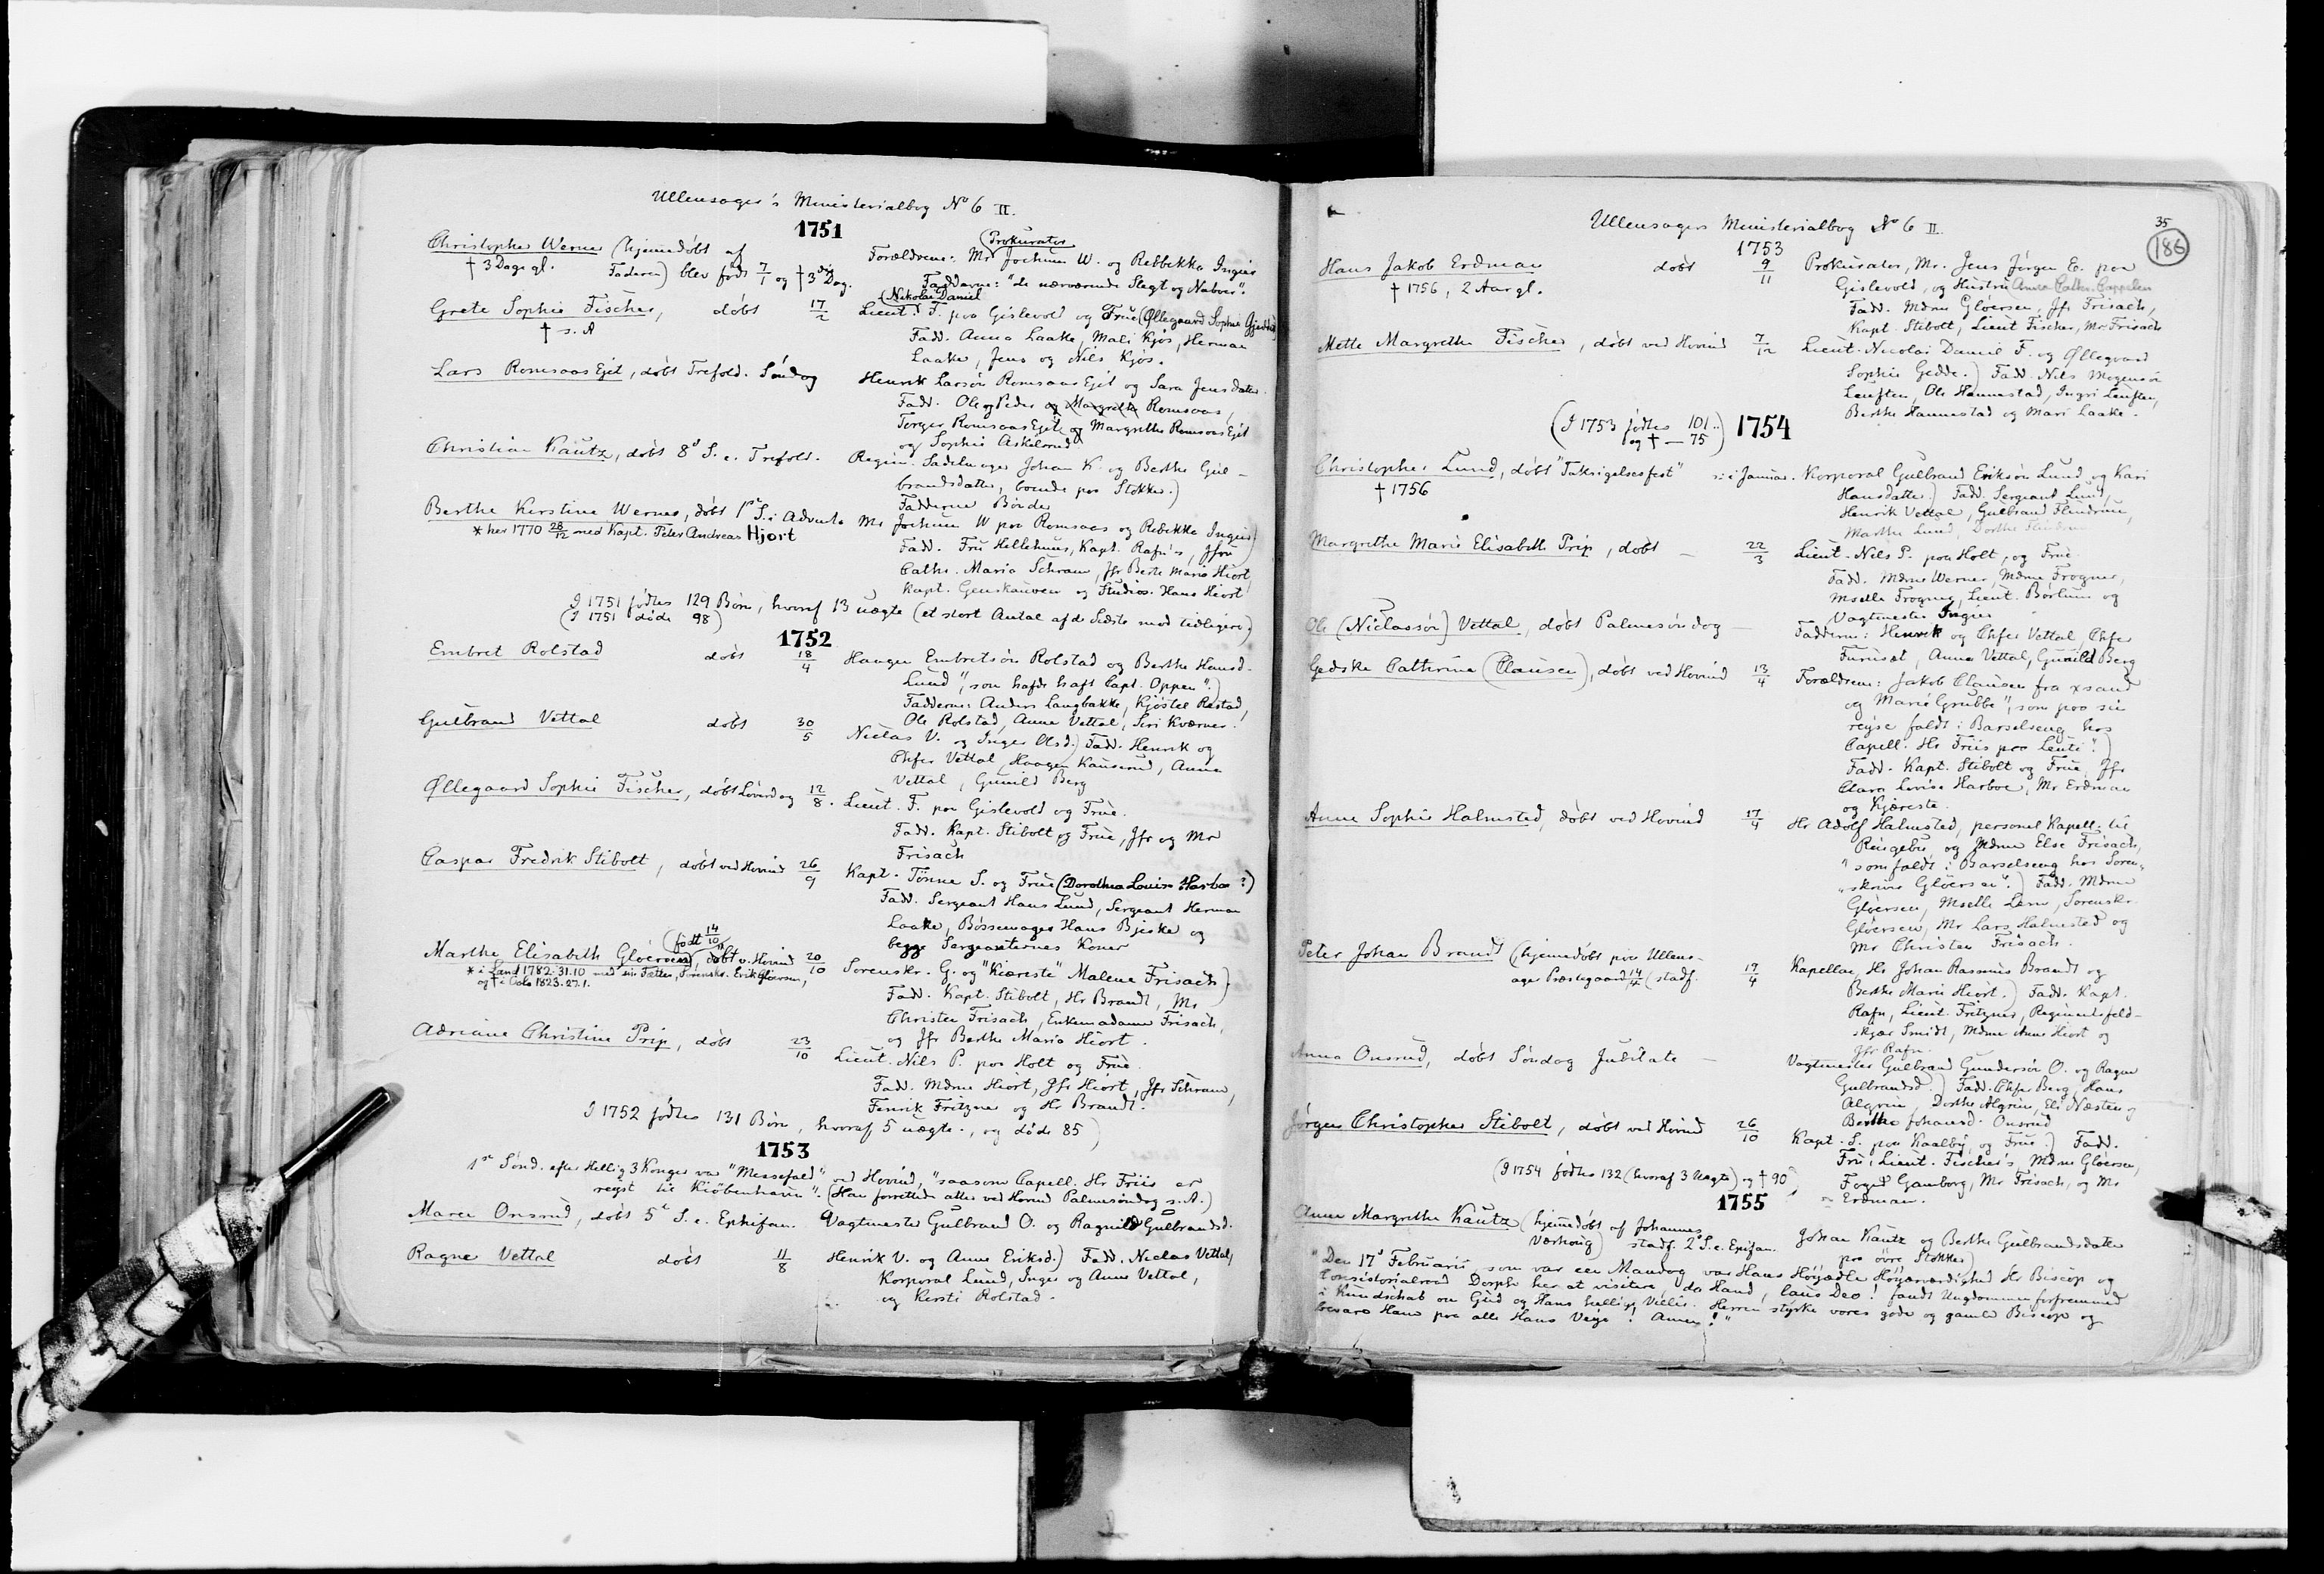 Ullensager's Ministerialbog No 6 II.
1751
Christopher Werner (hjemmedöbt af
Faderen) blev födt 7/1 og † 3die Dag.
† 3 Dage gl.
(Prokurator
Forældrene: Mr Jochum W. og Rebbekka Ingier
Fadderne: "de nærværende Slegt og Naboer".
Grete Sophie Fischer, döbt 17/2
† s. A
(Nikolai Daniel
Lieut. F. paa Gislevold og Frue (Øllegaard Sophie Gjedde)
Fadd. Anna Laake, Mali Kjos, Herman
Laake, Jens og Nils Kjos.
Lars RomsaasEjet, döbt Trefold. Söndag
Henrik Larsön RomsaasEjet og Sara Jensdatter.
Fadd. Ole og Peder og Margrethe Romsaas,
Torger RomsaasEjet og Margrethe RomsaasEjet
og Sophie Askelsrud
Christian Kautz, döbt 8d S. e. Trefold.
Regim. Sadelmager Johan K. og Berthe Gul-
brandsdatter, boende paa Stokker.)
Fadderne Bönder
Berthe Kirstine Werner, döbt 1ste S. i Advent
* her 1770 28/12 med Kapt. Peter Andreas Hjort
Mr Jochum W paa Romsaas og Rebekka Ingier)
Fadd. Fru Hellehuus, Kapt. Rafn's, Jfru
Cathr. Maria Schram, Jfr Berte Maria Hiort,
Kapt. Genskauven og Studios. Hans Hiort
I 1751 födtes 129 Börn, hvoraf 13 uægte (et stort Antal af de Sidste mod tidligere)
(I 1751 döde 98)
1752
Embret Rolstad döbt 18/4
Haagen Embretsön Rolstad og Berthe Hansd.
Lund", som hafde haft Capt. Oppen".)
Fadderne: Anders Langbakke, Kjöstel Rastad,
Ole Rolstad, Anne Vettal, Siri Kværner.
Gulbrand Vettal döbt 30/5
Niclas V. og Inger Olsd.) Fadd. Henrik og
Chfer Vettal, Haagen Kauserud, Anne
Vettal, Gunild Berg
Øllegaard Sophie Fischer, döbt Löverdag 12/8.
Lieut. F. paa Gislevold og Frue.
Fadd. Kapt. Stibolt og Frue, Jfr og Mr
Frisach
Caspar Fredrik Stibolt, döbt ved Hovind 26/9
Kapt. Tönne S. og Frue (Dorothea Louise Harboe?)
Fadd. Sergeant Hans Lund, Sergeant Herman
Laake, Bössemager Hans Bjeske og
begge Sergeanternes Koner
(födt 14/10)
Marthe Elisabeth Glöersen, döbt v. Hovind 20/10
* i Land 1782.31.10 med sin Fætter, Sorenskr. Erik Glöersen,
og † i Oslo 1823.27.1.
Sorenskr. G. og "Kiæreste" Malene Frisach)
Fadd. Kapt. Stibolt, Hr Brandt, Mr
Christen Frisach, Enkemadame Frisach,
og Jfr Berthe Maria Hiort.
Adriane Christine Prip, döbt 23/10
Lieut. Nils P. paa Holt og Frue.
Fadd. Mdme Hiort, Jfr Hiort, Jfr Schram,
Fenrik Fritzner og Hr Brandt.
I 1752 födtes 131 Börn, hvoraf 5 uægte., og döde 85)
1753
1ste Sönd. efter Hellig 3 Konger var "Messefald" ved Hovind, "saasom Capell. Hr Friis er
reyst til Kiöbenhavn". (Han forrettede atter ved Hovind Palmesöndag s. A.)
Maren Onsrud, döbt 5te S. e. Ephifan.
Vagtmester Gulbrand O. og Ragnild Gulbrandsd.
Ragne Vettal döbt 11/8
Henrik V. og Anne Eriksd.) Fadd. Niclas Vettal,
Korporal Lund, Inger og Anne Vettal,
og Kersti Rolstad.
35
(186)
Ullensagers Ministerialbog No 6 II.
1753
Hans Jakob Erdman döbt 9/11
† 1756, 2 Aar gl.
Prokurator, Mr. Jens Jörgen E. paa
Gislevold, og Hustru Anna Cathr. Cappelen
Fadd. Mdme Glöersen, Jfr Frisach,
Kapt. Stibolt, Lieut Fischer, Mr Frisach
Mette Margrethe Fischer, döbt ved Hovind 7/12
Lieut. Nicolai Daniel F. og Øllegaard
Sophie Gedde.) Fadd. Nils Mogensön
Leuften, Ole Hannestad, Ingri Leuften,
Berthe Hannestad og Mari Laake.
(I 1753 födtes 101..
og † — 75)
1754
Christopher Lund, döbt "Taksigelsesfest" ɔ: i Januar.
† 1756
Korporal Gulbrand Eriksön Lund og Kari
Hansdatter.) Fadd. Sergeant Lund,
Henrik Vettal, Gulbrand Flendrum,
Marthe Lund, Dorthe Flendrum
Margrethe Marie Elisabeth Prip, döbt — 22/3
Lieut. Nils P. paa Holt, og Frue.
Fadd. Mdme Werner, Mdme Frogner,
Mselle Frogner, Lieut. Borlum og
Vagtmester Ingier
Ole (Niclassön) Vettal, döbt Palmesöndag —
Fadderne: Henrik og Chfer Vettal, Chfer
Furuset, Anna Vettal, Gunild Berg
Gedske Cathrine (Clausen), döbt ved Hovind 13/4
Forældrene: Jakob Clausen fra xsand
og Marie Grubbe", som paa sin
reyse faldt i Barselseng hos
Capell. Hr Friis paa Leuti".)
Fadd. Kapt. Stibolt og Frue, Jfr
Clara Lovise Harboe, Mr Erdman
og Kjæreste.
Anne Sophie Halmsted, döbt ved Hovind 17/4
Hr Adolf Halmsted, personel Kapell. til
Ringebu og Mdme Else Frisach,
"som faldt i Barselseng hos Soren-
"skriver Glöersen".) Fadd. Mdme
Glöersen, Mselle Lem, Sorenskr.
Glöersen, Mr Lars Halmsted og
Mr Christen Frisach.
Peter Johan Brandt (hjemmedöbt paa Ullens-
ager Præstegaard 14/4 (stadf. 19/4
Kapellan, Hr Johan Rasmus Brandt og
Berthe Marie Hiort.) Fadd. Kapt.
Rafn, Lieut. Fritzner, Regimentsfeld-
skjær Smidt, Mdme Anne Hiort og
Jfr Rafn.
Anna Onsrud, döbt Söndag Jubilate —
Vagtmester Gulbrand Gundersön O. og Ragne
Gulbrandsd.) Fadd. Chfer Berg, Hans
Algrim, Dorthe Algrim, Eli Næsten og
Berthe Johansd. Onsrud
Jörgen Christopher Stibolt, döbt ved Hovind 26/10
Kapt. S. paa Kaalby, og Frue.) Fadd.
Fru Lieut. Fischer's, Mdme Glöersen,
Foged Gamborg, Mr Frisach, og Mr
Erdman.
(I 1754 födtes 132 (hvoraf 3 Uægte) og † 90)
1755
Anne Margrethe Kautz (hjemmedöbt af Johannes
Værhoug) stadf. 2d S. e. Epifan.
Johan Kautz og Berthe Gulbrandsdatter
paa övre Stokker)
"Den 17d Februarii, som var een Mandag var Hans Höyædle Höyærværdighed Hr Biscop og
Consistorialraad Dorph her at visitere, da Hand, laus Deo! fandt Ungdommen forfremmed
i Kundschab om Gud og Hans hellige Villie. Herren styrke vores gode og gamle Biscop og
bevare Ham paa alle Hans Veye! Amen!"